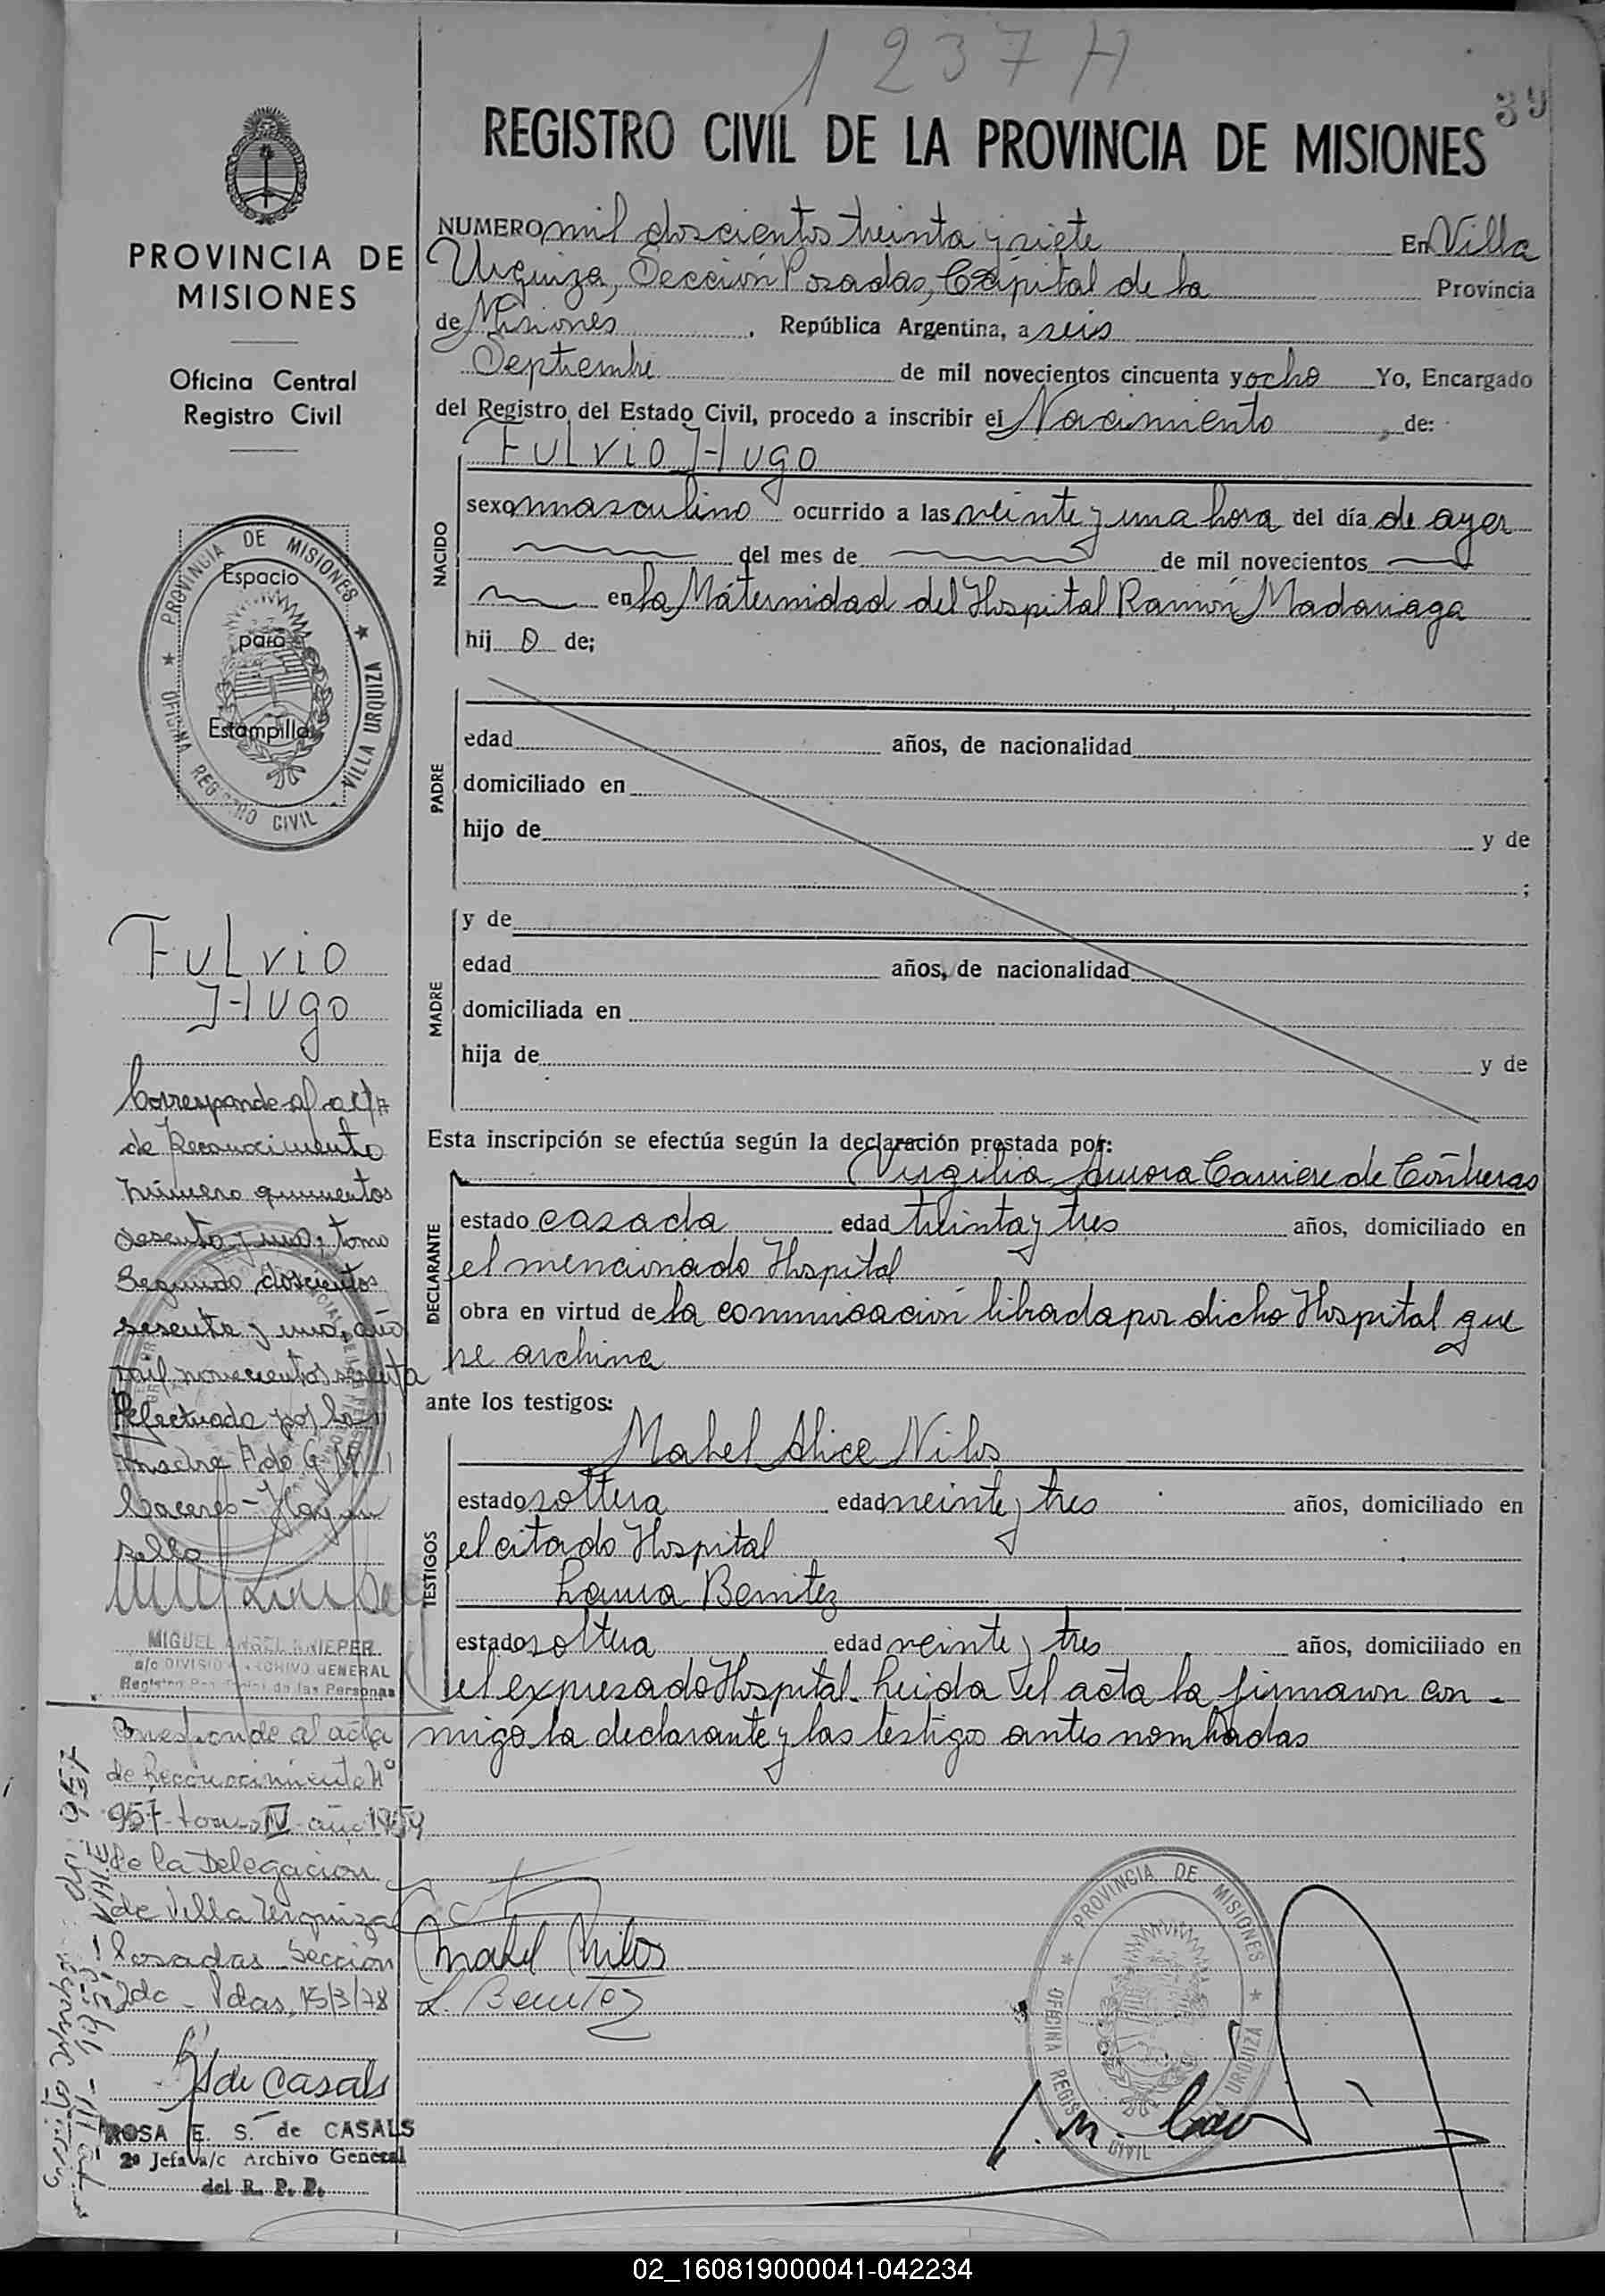 1237 H
39
REGISTRO CIVIL DE LA PROVINCIA DE MISIONES
PROVINCIA DE
MISIONES
Oficina Central
Registro Civil
PROVINCIA DE MISIONES
OFICINA REGISTRO CIVIL VILLA URQUIZA
Espacio
para
Estampilla
NUMERO mil doscientos treinta y siete En Villa
Urquiza, Sección Posadas, Capital de la Provincia
de Misiones, República Argentina, a seis
Septiembre de mil novecientos cincuenta y ocho Yo, Encargado
del Registro del Estado Civil, procedo a inscribir el Nacimiento de:
NACIDO
FULVIO HUGO
sexo masculino ocurrido a las veinte y una hora del día de ayer
del mes de de mil novecientos
en la Maternidad del Hospital Ramón Madariaga
hij o de;
PADRE
edad años, de nacionalidad
domiciliado en
hijo de y de
;
MADRE
y de
edad años, de nacionalidad
domiciliada en
hija de y de
Esta inscripción se efectúa según la declaración prestada por:
DECLARANTE
Virgilia Aurora Carriere de Contreras
estado casada edad treinta y tres años, domiciliado en
el mencionado Hospital
obra en virtud de la comunicación librada por dicho Hospital que
se archiva
ante los testigos:
TESTIGOS
Mabel Alice Nilos
estado soltera edad veinte y tres años, domiciliado en
el citado Hospital
Laura Benitez
estado soltera edad veinte y tres años, domiciliado en
el expresado Hospital. Leida el acta la firmaron con-
migo la declarante y las testigos antes nombradas
Mabel Nilos
L. Benitez
PROVINCIA DE MISIONES
OFICINA REGISTRO CIVIL URQUIZA
FULVIO
HUGO
Corresponde al acta
de Reconocimiento
número quinientos
sesenta y uno, tomo
Segundo doscientos
sesenta y uno, año
mil novecientos sesenta
efectuada por la
madre
Caceres - Hay un
sello
MIGUEL ANGEL KNIEPER
a/c DIVISION ARCHIVO GENERAL
Registro Provincial de las Personas
Corresponde al acta
de Reconocimiento Nº
957 tomo IV año 1959
de la Delegacion
de Villa Urquiza
Posadas Sección
2da - Pdas, 15/3/78
de Casals
ROSA E. S. de CASALS
2º Jefa a/c Archivo General
del R. P. P.
02_160819000041-042234